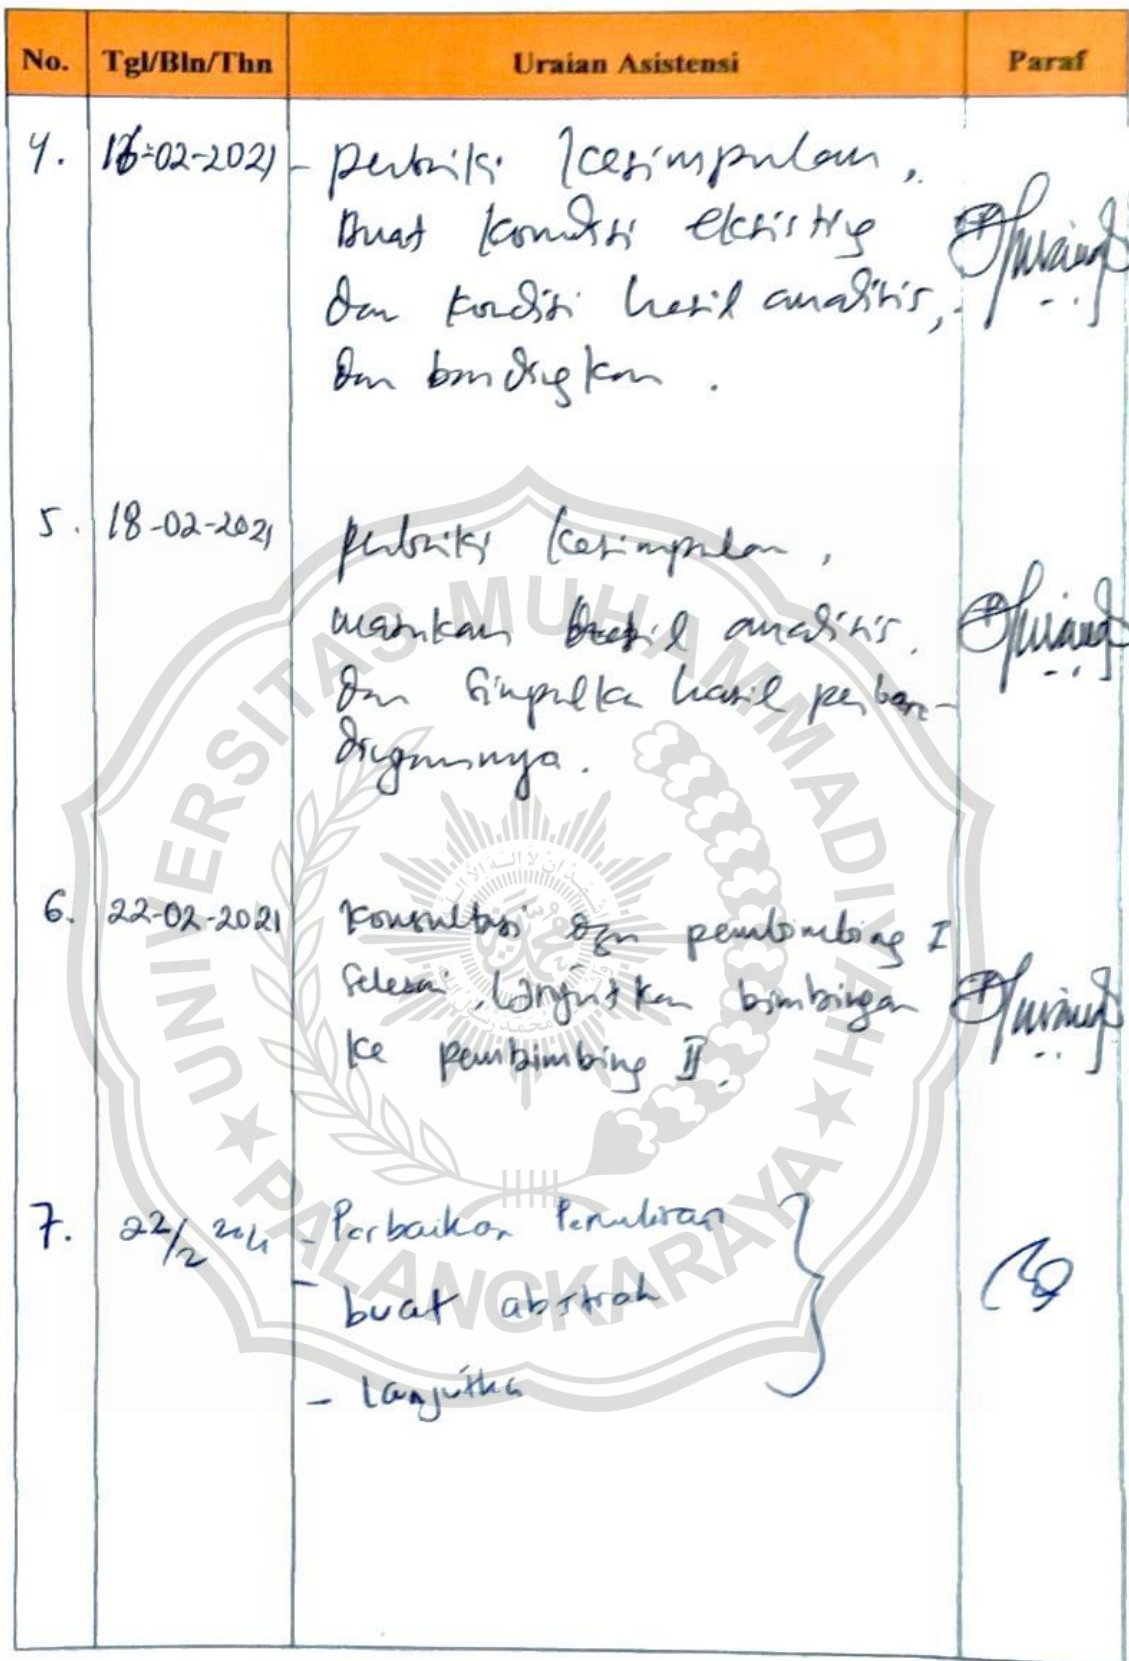 No. Tgl/Bln/Thn Uraian Asistensi Paraf
4. 16-02-2021 - perbaiki kesimpulan,
Buat kondisi eksisting
dan kondisi hasil analisis,
dan bandingkan.
5. 18-02-2021 perbaiki kesimpulan,
masukan hasil analisis.
dan simpulka hasil perban-
dingannya.
6. 22-02-2021 Konsultasi dgn pembimbing I
selesai, lanjutkan bimbingan
ke pembimbing II.
7. 22/2 2021 - Perbaikan Penulisan
- buat abstrak
- lanjutka
UNIVERSITAS MUHAMMADIYAH
PALANGKARAYA